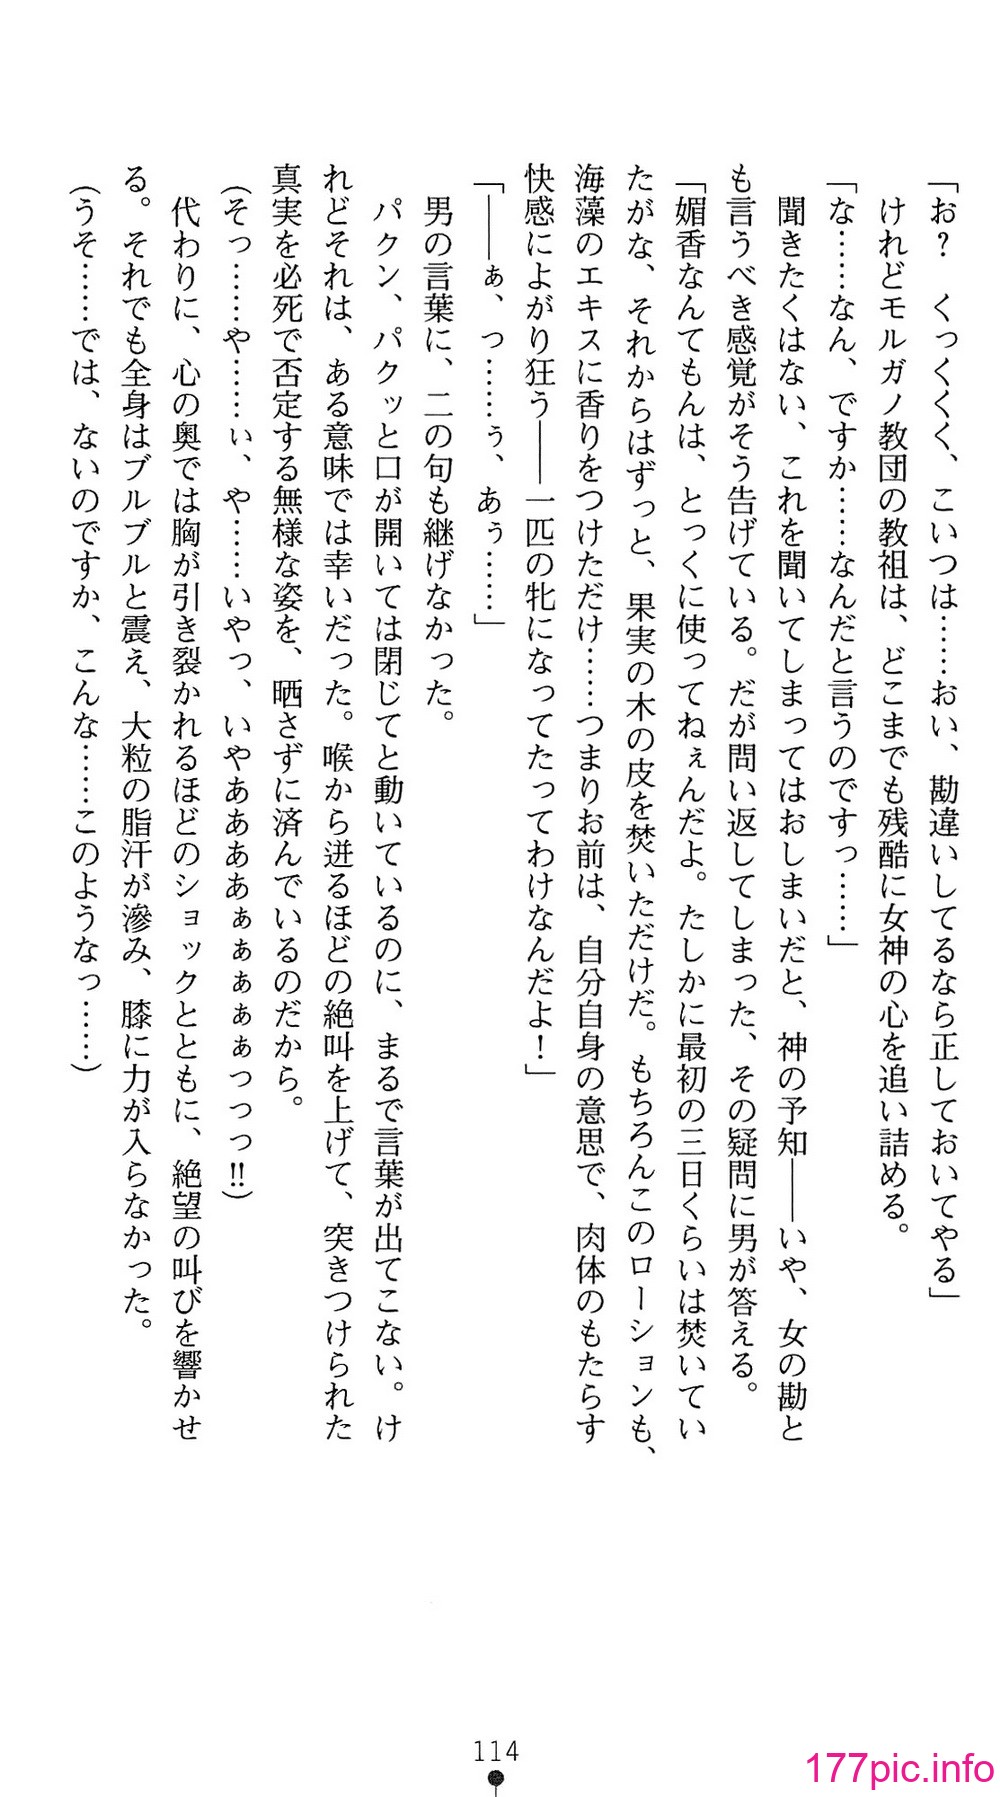 「お？　くっくくく、こいつは……おい、勘違いしてるなら正しておいてやる」
けれどモルガノ教団の教祖は、どこまでも残酷に女神の心を追い詰める。
「な……なん、ですか……なんだと言うのですっ……」
聞きたくはない、これを聞いてしまってはおしまいだと、神の予知――いや、女の勘と
も言うべき感覚がそう告げている。だが問い返してしまった、その疑問に男が答える。
「媚香なんてもんは、とっくに使ってねぇんだよ。たしかに最初の三日くらいは焚いてい
たがな、それからはずっと、果実の木の皮を焚いただけだ。もちろんこのローションも、
海藻のエキスに香りをつけただけ……つまりお前は、自分自身の意思で、肉体のもたらす
快感によがり狂う――一匹の牝になってたってわけなんだよ！」
「――ぁ、っ……ぅ、あぅ……」
男の言葉に、二の句も継げなかった。
パクン、パクッと口が開いては閉じてと動いているのに、まるで言葉が出てこない。け
れどそれは、ある意味では幸いだった。喉から迸るほどの絶叫を上げて、突きつけられた
真実を必死で否定する無様な姿を、晒さずに済んでいるのだから。
（そっ……や……ぃ、や……いやっ、いやああああぁぁぁぁぁっっっ!!）
代わりに、心の奥では胸が引き裂かれるほどのショックとともに、絶望の叫びを響かせ
る。それでも全身はブルブルと震え、大粒の脂汗が滲み、膝に力が入らなかった。
（うそ……では、ないのですか、こんな……このようなっ……）
114
177pic.info